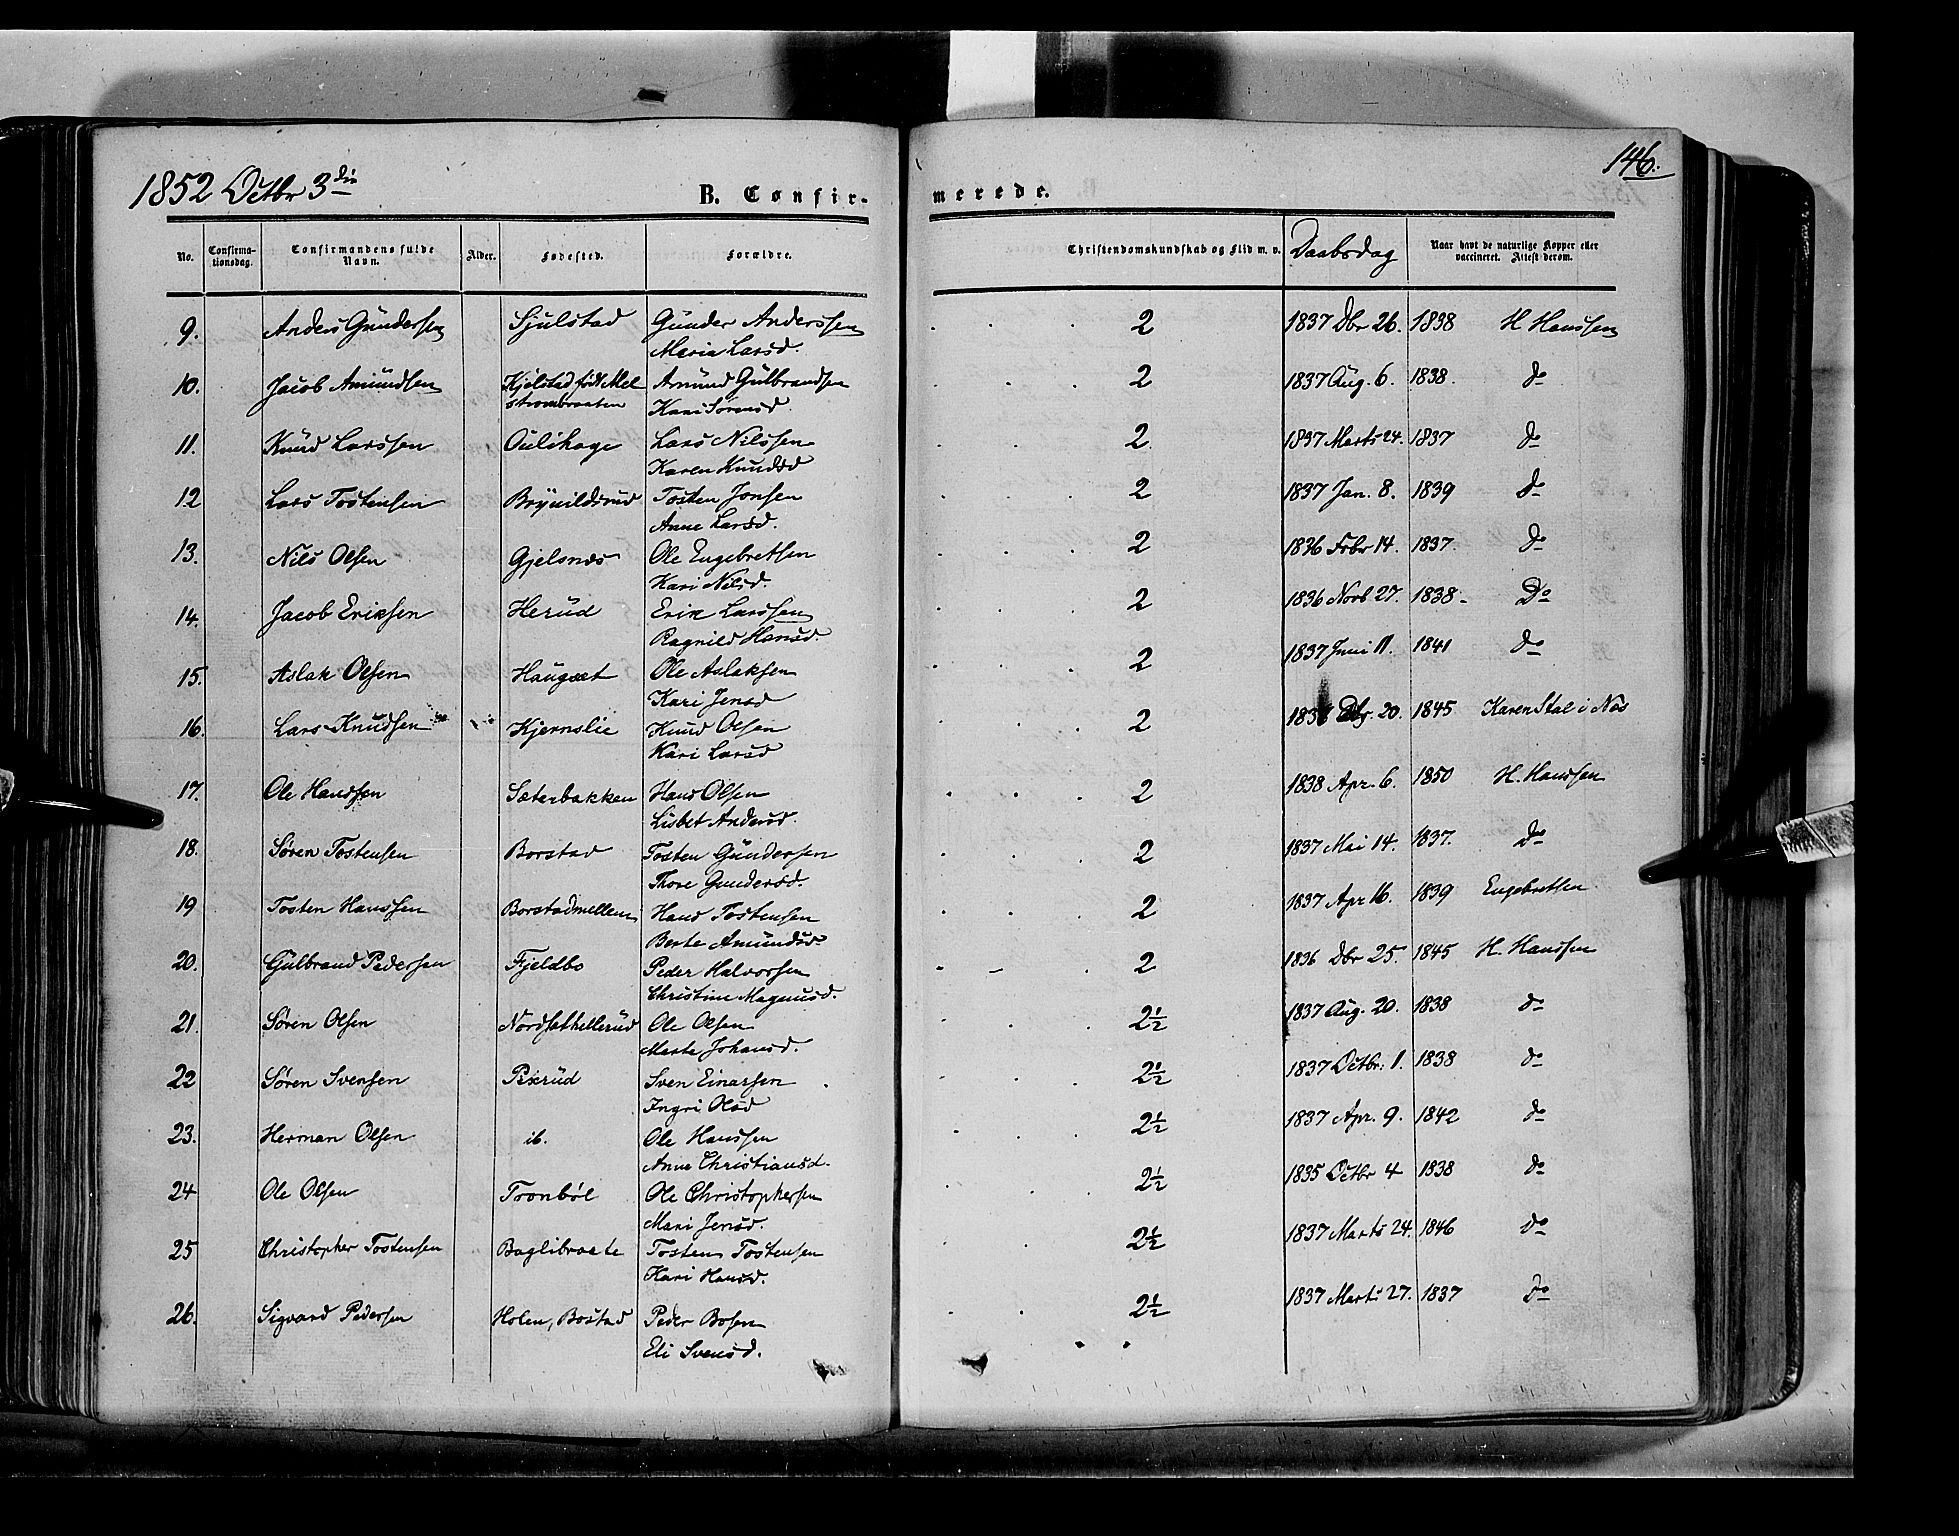 1852 Octbr 3die
B. Confirmerede.
146.
No. Confirmationsdag. Confirmandens fulde Navn. Alder. Fødested. Forældre. Christendomskundskab og Flid m. v. Daabsdag Naar havt de naturlige Kopper eller vaccineret. Attest derom.
9. Anders Gundersen Sjulstad Gunder Anderssen 2 1837 Dbr 26. 1838 H Hanssen
Maria Larsd.
10. Jacob Amundsen Kjelstad født Mel Amund Gulbrandsen 2 1837 Aug. 6. 1838. do
strombraaten Kari Sørensd.
11. Knud Larssen Oulihage Lars Nilssen 2 1837 Marts 24. 1837 do
Karen Knudsd
12 Lars Tostensen Brynildsrud Tosten Jonsen 2 1837 Jan. 8. 1839 do
Anne Larsd.
13. Nils Olsen Gjelsnæs Ole Engebretsen 2 1836 Febr 14. 1837. do
Kari Nilsd.
14. Jacob Eriksen Herud Erik Larssen 2 1836 Novb 27. 1838 - Do
Ragnild Hansd.
15. Aslak Olsen Haugset Ole Aslaksen 2 1837 Juni 11. 1841 do
Kari Jensd
16. Lars Knudsen Kjernslie Knud Olsen 2 1836 Dbr. 20. 1845 Karen Stal i Næs
Kari Larsd
17. Ole Hanssen Sæterbakken Hans Olsen 2 1838 Apr. 6. 1850 H. Hanssen
Lisbet Andersd.
18. Søren Tostensen Borstad Tosten Gundersen 2 1837 Mai 14. 1837. Do
Thore Gundersd.
19 Tosten Hanssen Borstadmellem Hans Tostensen 2 1837 Apr 16. 1839 Engebretsen
Berte Amundsd
20. Gulbrand Pedersen Fjeldbo Peder Halvorsen 2 1836 Dbr 25. 1845 H. Hanssen
Christine Magnusd.
21. Søren Olsen Nordsethellerud Ole Olsen 2½ 1837 Aug. 20. 1838 do
Marte Johansd.
22 Søren Svensen Pixrud Sven Einarsen 2½ 1837 Octbr. 1. 1838 do
Ingri Olsd
23. Herman Olsen ib. Ole Hanssen 2½ 1837 Apr. 9. 1842 do
Anne Christiansd.
24 Ole Olsen Tronbøl Ole Christophersen 2½ 1835 Octbr 4 1838 do
Mari Jensd.
25 Christopher Tostensen Baglibraate Tosten Tostensen 2½ 1837 Marts 24. 1846 do
Kari Hansd.
26. Sigvard Pedersen Holen, Bostad Peder Bosen 2½ 1837 Marts 27. 1837 do
Eli Svensd.